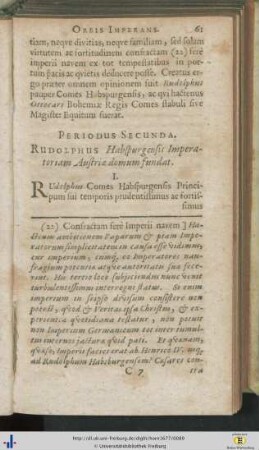 ORBIS IMPERANS. 61
tiam, neqve divitias, neqve familiam, sed solam
virtutem ac fortitudinem confractam (22) ferè
imperii navem ex tot tempestatibus in por-
tum pacis ac qvietis deducere posse. Creatus er-
go præter omnem opinionem fuit Rudolphus
pauper Comes Habspurgensis, ac qvi hactenus
Ottocari Bohemiæ Regis Comes stabuli sive
Magister Equitum fuerat.
PERIODUS SECUNDA.
RUDOLPHUS Habspurgensis Impera-
toriam Austriæ domum fundat.
I.
RUdolphus Comes Habspurgensis Princi-
pum sui temporis prudentissimus ac fortis-
simus
(22) Confractam ferè imperii navem] Ha-
ctenus ambitionem Paparum & etiam Impe-
ratorum simplicitatem in causa esse vidimus,
cur imperium, cumq; eo Imperatores nau-
fragium potentiæ atque autoritatis suæ fece-
rint. His tertio loco subjiciendus nunc venit
turbulentissimus interregni status. Si enim
imperium in seipso divisum consistere non
potest, quod & Veritas ipsa Christus, & ex-
perientia quotidiana testatur, non potuit
non Imperium Germanicum tot inter tumul-
tus internos jactura quid pati. Et quænam,
quæso, Imperii facies erat ab Henrico IV. usq;
ad Rudolphum Habsburgensem? Cæsares con-
C 7 tra